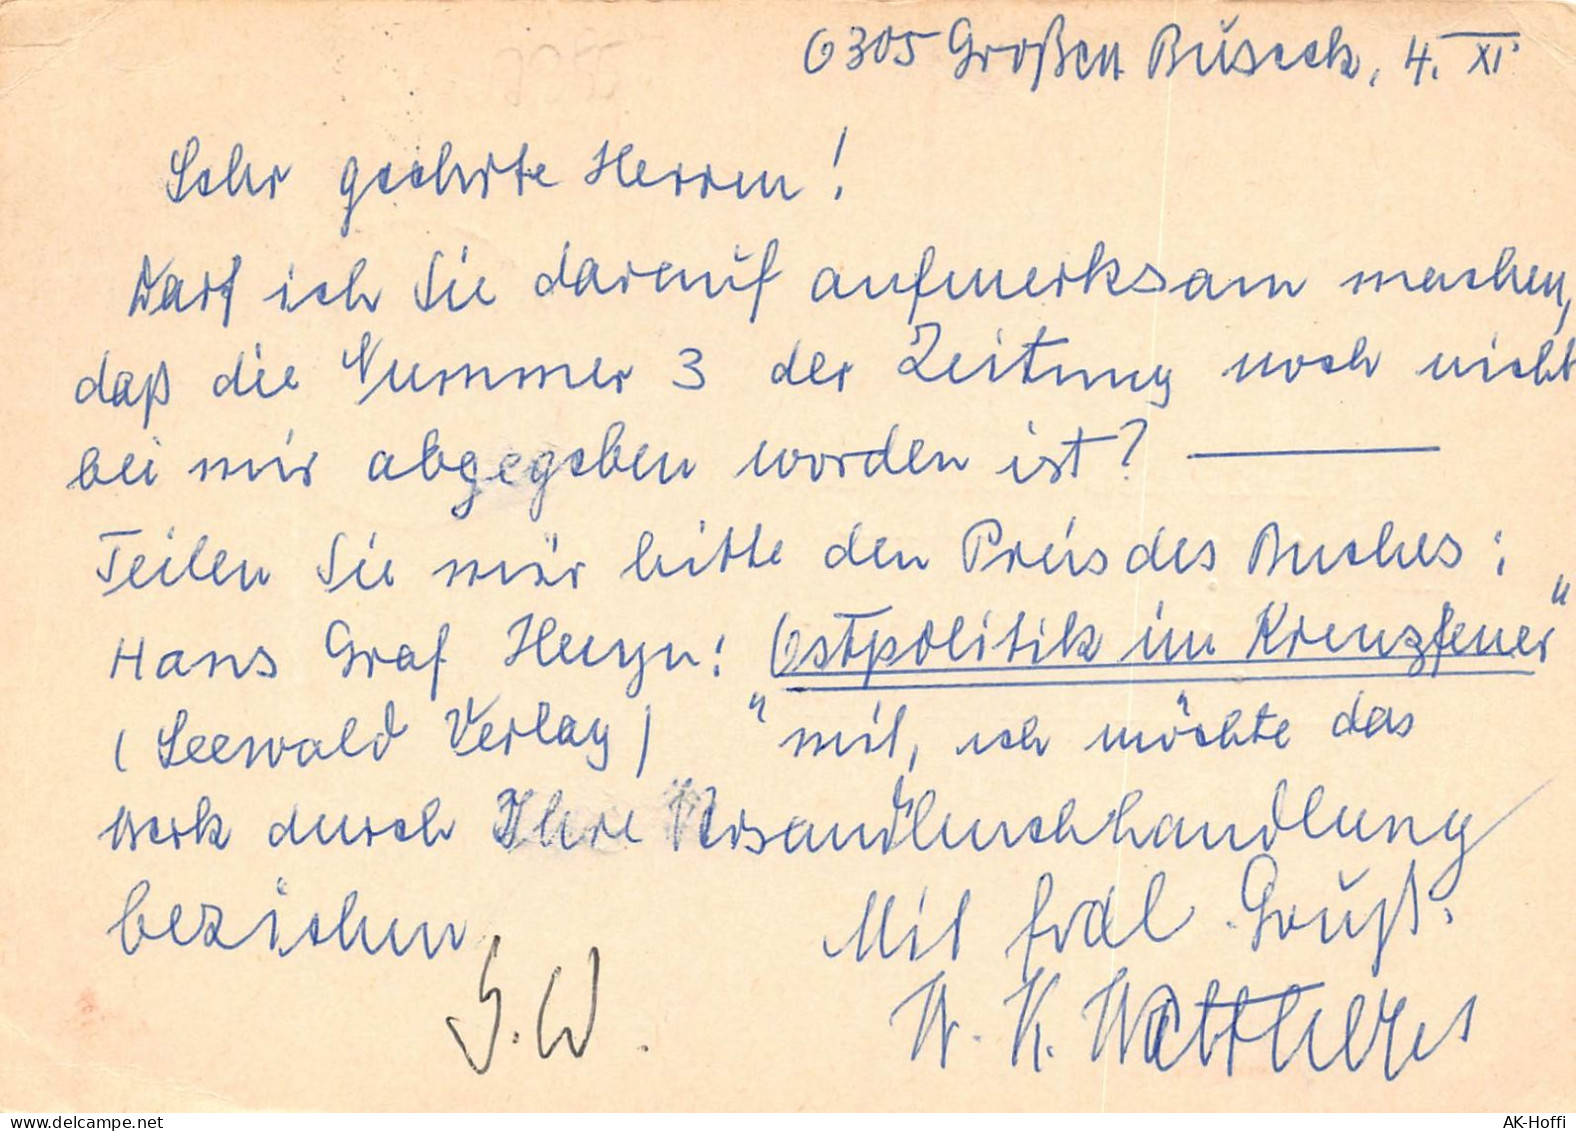 6305 Großen Buseck, 4. XI.
Sehr geehrte Herren!
Darf ich Sie darauf aufmerksam machen,
daß die Nummer 3 der Zeitung noch nicht
bei mir abgegeben worden ist? ———
Teilen Sie mir bitte den Preis des Buches:
Hans Graf Huyn: Ostpolitik im Kreuzfeuer"
(Seewald Verlag) " mit, ich möchte das
Werk durch Ihre Versandbuchhandlung
beziehen
Mit frdl. Gruß.
W. K.
AK-Hoffi